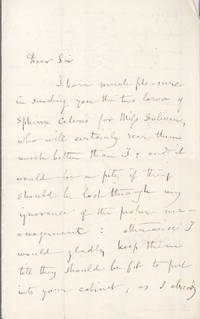 Dear Sir
I have much pleasure
in sending you the two larvae of
Sphinx Celerio for Miss Sulivan,
who will certainly rear them
much better than I; and it
would be a pity if they
should be lost through my
ignorance of the proper ma-
nagement: otherwise I
would gladly keep them
till they should be fit to put
into your cabinet, as I already